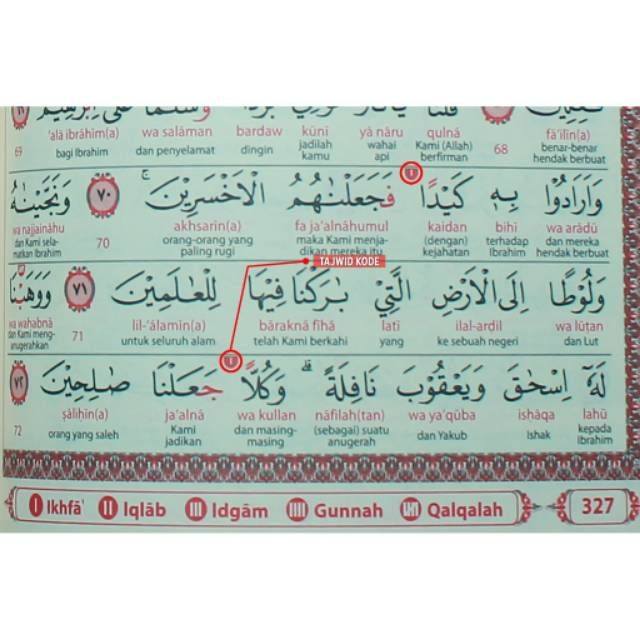 fā'ilīn(a) qulnā yā nāru kūnī bardaw wa salāman 'alā ibrāhīm(a)
benar-benar hendak berbuat 68 Kami (Allah) berfirman wahai api jadilah kamu dingin dan penyelamat bagi Ibrahim 69
وَاَرَادُوْا بِهٖ كَيْدًا فَجَعَلْنٰهُمُ الْاَخْسَرِيْنَ ۚ ٧٠ وَنَجَّيْنٰهُ
wa arādū bihī kaidan fa ja'alnāhumul akhsarīn(a) wa najjaināhu
dan mereka hendak berbuat terhadap Ibrahim (dengan) kejahatan maka Kami menjadikan mereka itu orang-orang yang paling rugi 70 dan Kami selamatkan Ibrahim
TAJWID KODE
وَلُوْطًا اِلَى الْاَرْضِ الَّتِيْ بٰرَكْنَا فِيْهَا لِلْعٰلَمِيْنَ ٧١ وَوَهَبْنَا
wa lūṭan ilal-arḍil latī bāraknā fīhā lil-'ālamīn(a) wa wahabnā
dan Lut ke sebuah negeri yang telah Kami berkahi untuk seluruh alam 71 dan Kami menganugerahkan
لَهٗٓ اِسْحٰقَ وَيَعْقُوْبَ نَافِلَةً ۗ وَكُلًّا جَعَلْنَا صٰلِحِيْنَ ٧٢
lahū isḥāqa wa ya'qūba nāfilah(tan) wa kullan ja'alnā ṣāliḥīn(a)
kepada Ibrahim Ishak dan Yakub (sebagai) suatu anugerah dan masing-masing Kami jadikan orang yang saleh 72
I Ikhfā' II Iqlāb III Idgām IIII Gunnah Qalqalah 327